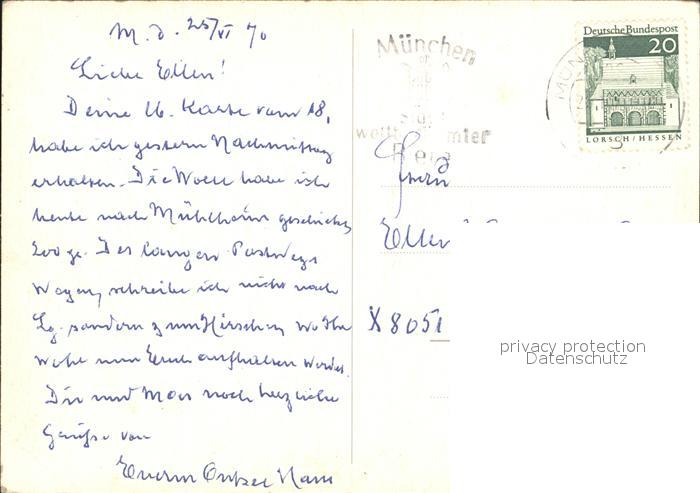 M. d. 25/VI 70
Liebe Ellen!
Deine lb. Karte vom 18.
habe ich gestern Nachmittag
erhalten. Die Wolle habe ich
heute nach Mühlheim geschickt
200 gr. Des langen Postwegs
wegen, schreibe ich nicht nach
Lg. sondern zum Hirschen, wo Ihr
wohl zum Essen aufhalten werdet.
Dir und Max noch herzliche
Grüße von
Euerm Onkel Hans
München
weltberühmter
Deutsche Bundespost
20
LORSCH/HESSEN
Ellen
X 8051
privacy protection
Datenschutz